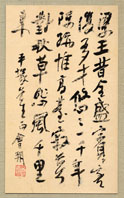 梁王昔全盛賓客
復多才悠〻一千年
陳跡惟高臺寂寞
對秋草悲風千里
來